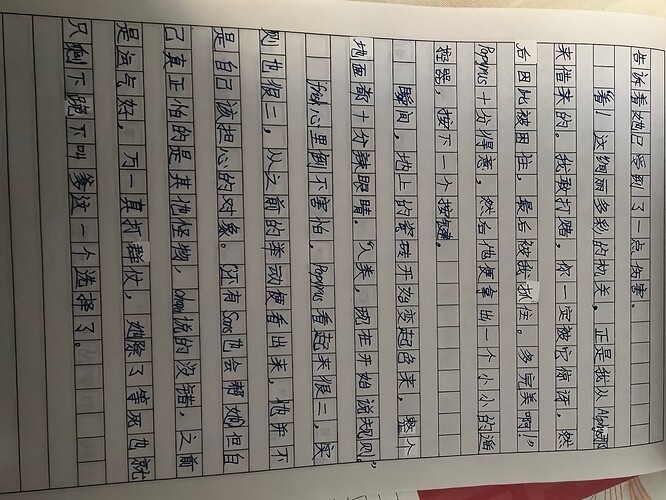 告诉着她已受到了一点伤害。
“看！这绚丽多彩的机关，正是我从Alphys那
来借来的。我敢打赌，你一定被它惊讶，然
后因此被困住，最后被我抓住。多完美啊！”
Papyrus十分得意，然后他便拿出一个小小的遥
控器，按下一个按键。
瞬间，地上的瓷砖开始变起色来，整个
地面都十分辣眼睛。“人类，现在开始说规则！”
frisk心里倒不害怕。Papyrus看起来很二，实
则也很二，从之前的举动便看出来，他并不
是自己该担心的对象。还有Sans也会帮她，但自
己真正怕的是其他怪物，chara说的没错，之前
是运气好，万一真打群仗，她除了等死也就
只剩下跪下叫爹这一个选择了。